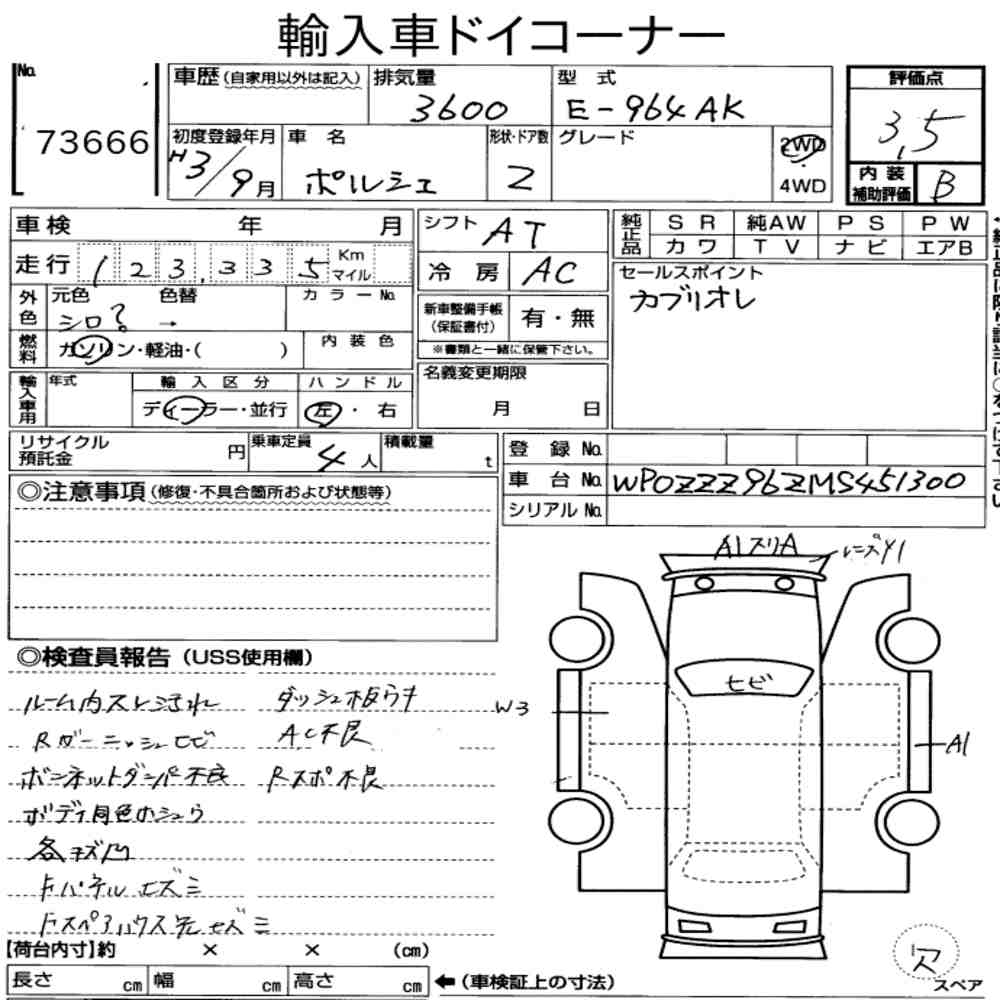 輸入車ドイコーナー
No. 73666
車歴(自家用以外は記入)
排気量 3600
型式 E-964AK
評価点 3.5
初度登録年月 H3/9月
車名 ポルシェ
形状・ドア数 2
グレード
2WD
4WD
内装補助評価 B
車検 年 月
シフト AT
純正品 SR 純AW PS PW
カワ TV ナビ エアB
走行 123,335 Km マイル
冷房 AC
セールスポイント
カブリオレ
外色 元色 色替 カラーNo.
シロ? →
新車整備手帳(保証書付) 有・無
※書類と一緒に保管下さい。
燃料 ガソリン・軽油・( ) 内装色
輸入車用 年式 輸入区分 ハンドル
ディーラー・並行 左・右
名義変更期限
月 日
リサイクル預託金 円
乗車定員 4人
積載量 t
登録No.
車台No. WP0ZZZ96ZMS451300
シリアルNo.
◎注意事項(修復・不具合箇所および状態等)
A1スリA
レンズY1
ヒビ
W3
A1
◎検査員報告(USS使用欄)
ルーム内スレ汚れ ダッシュ板ウキ
Rガーニッシュヒビ AC不良
ボンネットダンパー不良 Rスポ不良
ボディ同色ホシュウ
各キズ凹
Fパネルユズミ
【荷台内寸】約 × × (cm)
長さ cm 幅 cm 高さ cm
←(車検証上の寸法)
欠
スペア